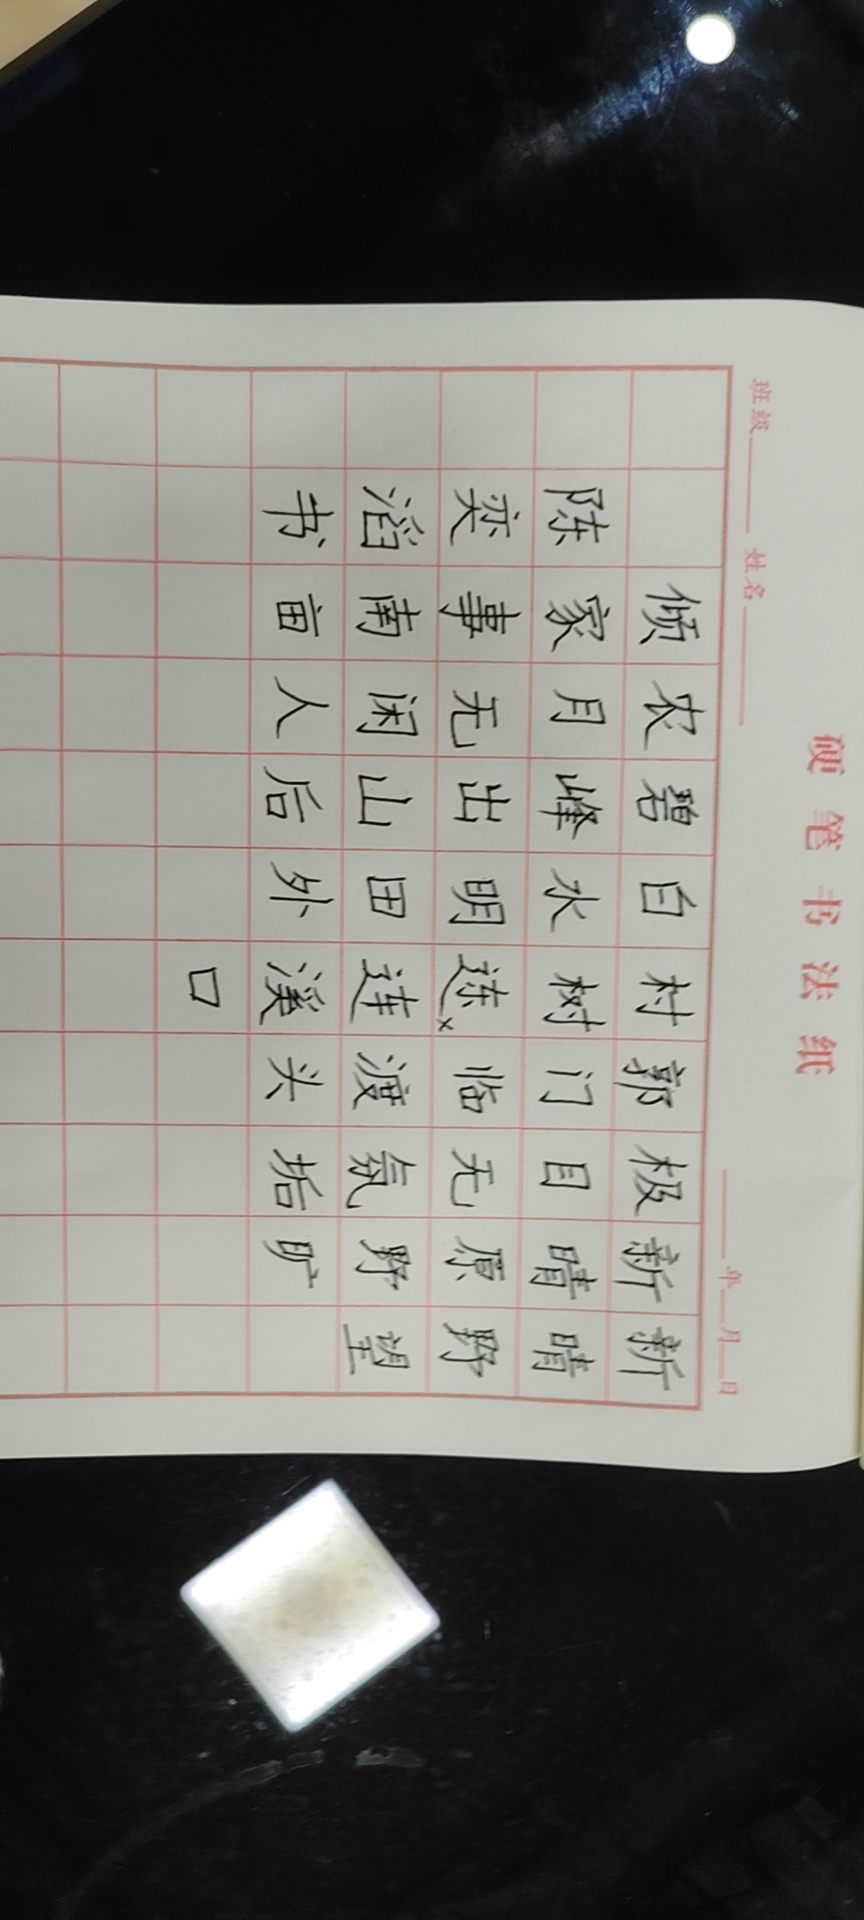 硬笔书法纸
班级 姓名 年 月 日
新晴野望
新晴原野旷
极目无氛垢
郭门临渡头
村树连溪口
白水明田外
碧峰出山后
农月无闲人
倾家事南亩
陈奕滔书